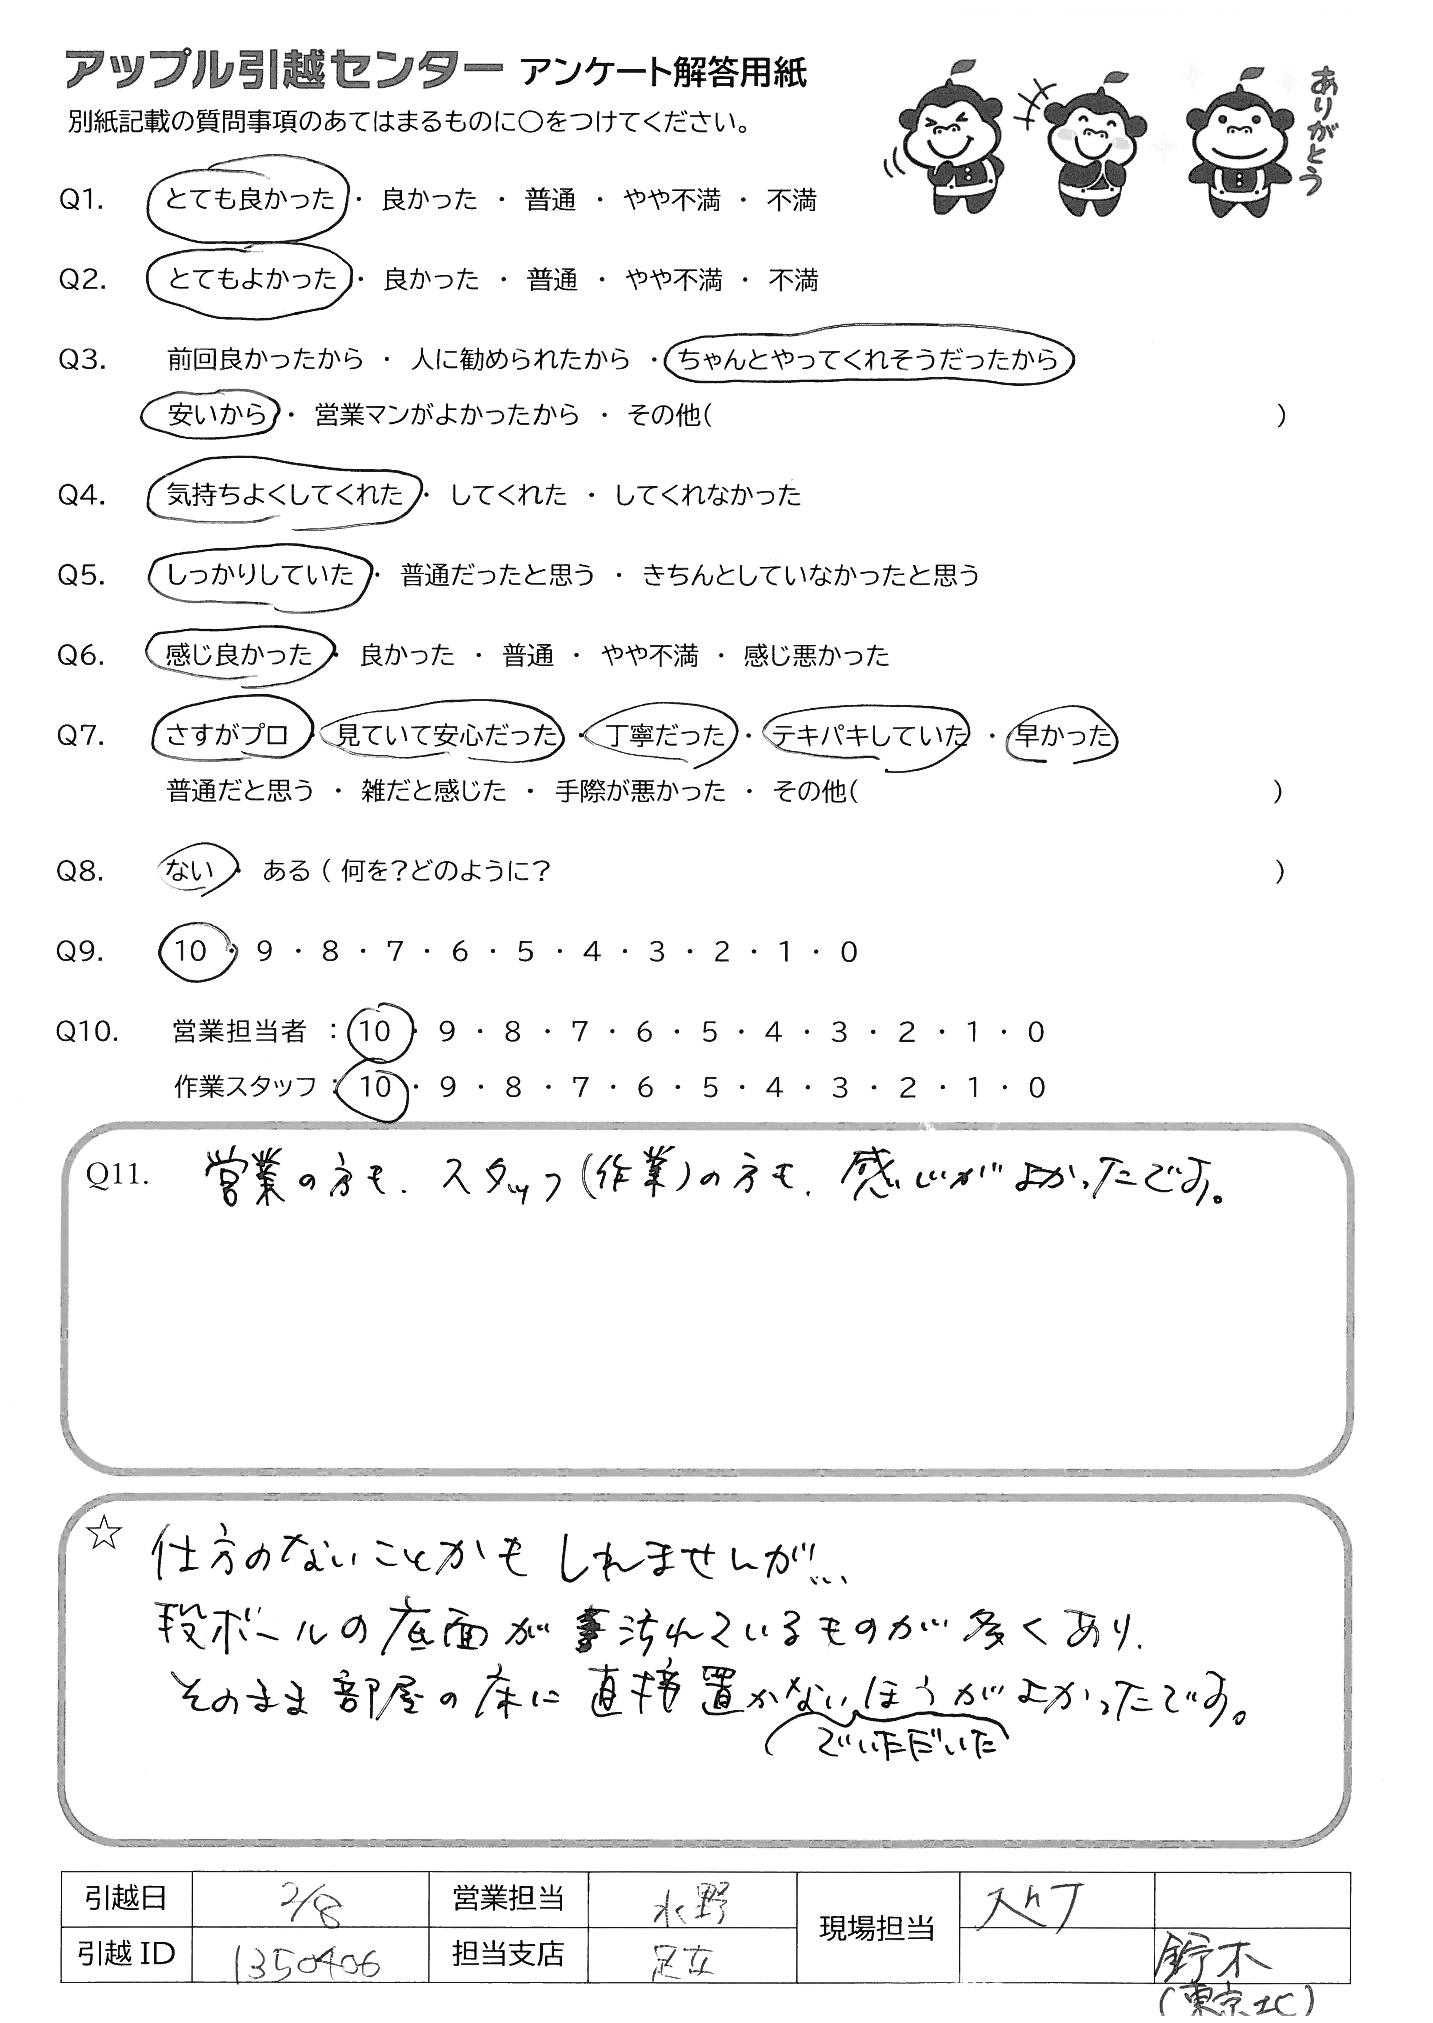 アップル引越センター アンケート解答用紙
ありがとう
別紙記載の質問事項のあてはまるものに○をつけてください。
Q1. とても良かった ・ 良かった ・ 普通 ・ やや不満 ・ 不満
Q2. とてもよかった ・ 良かった ・ 普通 ・ やや不満 ・ 不満
Q3. 前回良かったから ・ 人に勧められたから ・ ちゃんとやってくれそうだったから
安いから ・ 営業マンがよかったから ・ その他( )
Q4. 気持ちよくしてくれた ・ してくれた ・ してくれなかった
Q5. しっかりしていた ・ 普通だったと思う ・ きちんとしていなかったと思う
Q6. 感じ良かった ・ 良かった ・ 普通 ・ やや不満 ・ 感じ悪かった
Q7. さすがプロ ・ 見ていて安心だった ・ 丁寧だった ・ テキパキしていた ・ 早かった
普通だと思う ・ 雑だと感じた ・ 手際が悪かった ・ その他( )
Q8. ない ・ ある ( 何を?どのように? )
Q9. 10 ・ 9 ・ 8 ・ 7 ・ 6 ・ 5 ・ 4 ・ 3 ・ 2 ・ 1 ・ 0
Q10. 営業担当者 : 10 ・ 9 ・ 8 ・ 7 ・ 6 ・ 5 ・ 4 ・ 3 ・ 2 ・ 1 ・ 0
作業スタッフ : 10 ・ 9 ・ 8 ・ 7 ・ 6 ・ 5 ・ 4 ・ 3 ・ 2 ・ 1 ・ 0
Q11. 営業の方も、スタッフ(作業)の方も、感じがよかったです。
☆ 仕方のないことかもしれませんが...
段ボールの底面が汚れているものが多くあり、
そのまま部屋の床に直接置かないほうがよかったです。
でいただいた
引越日 2/8 営業担当 水野 現場担当
引越ID 1350406 担当支店 足立 鈴木
(東京エC)